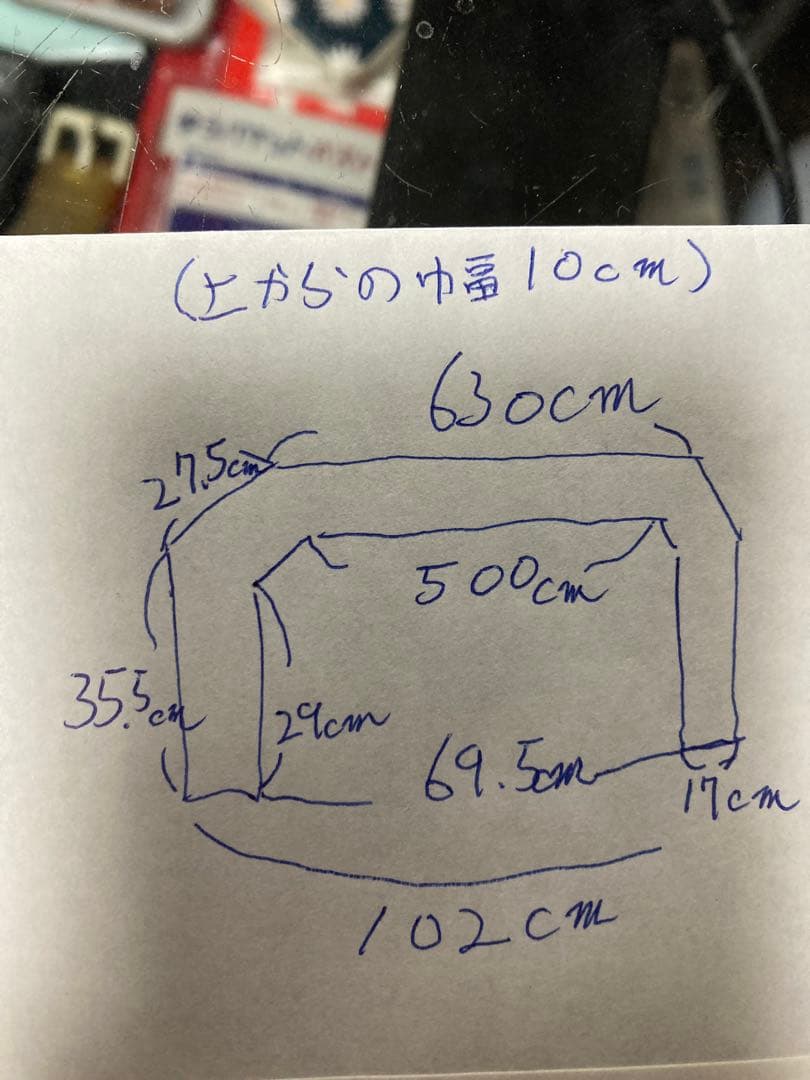 (上からの巾幅10cm)
630cm
27.5cm
500cm
35.5cm
29cm
69.5cm
17cm
102cm